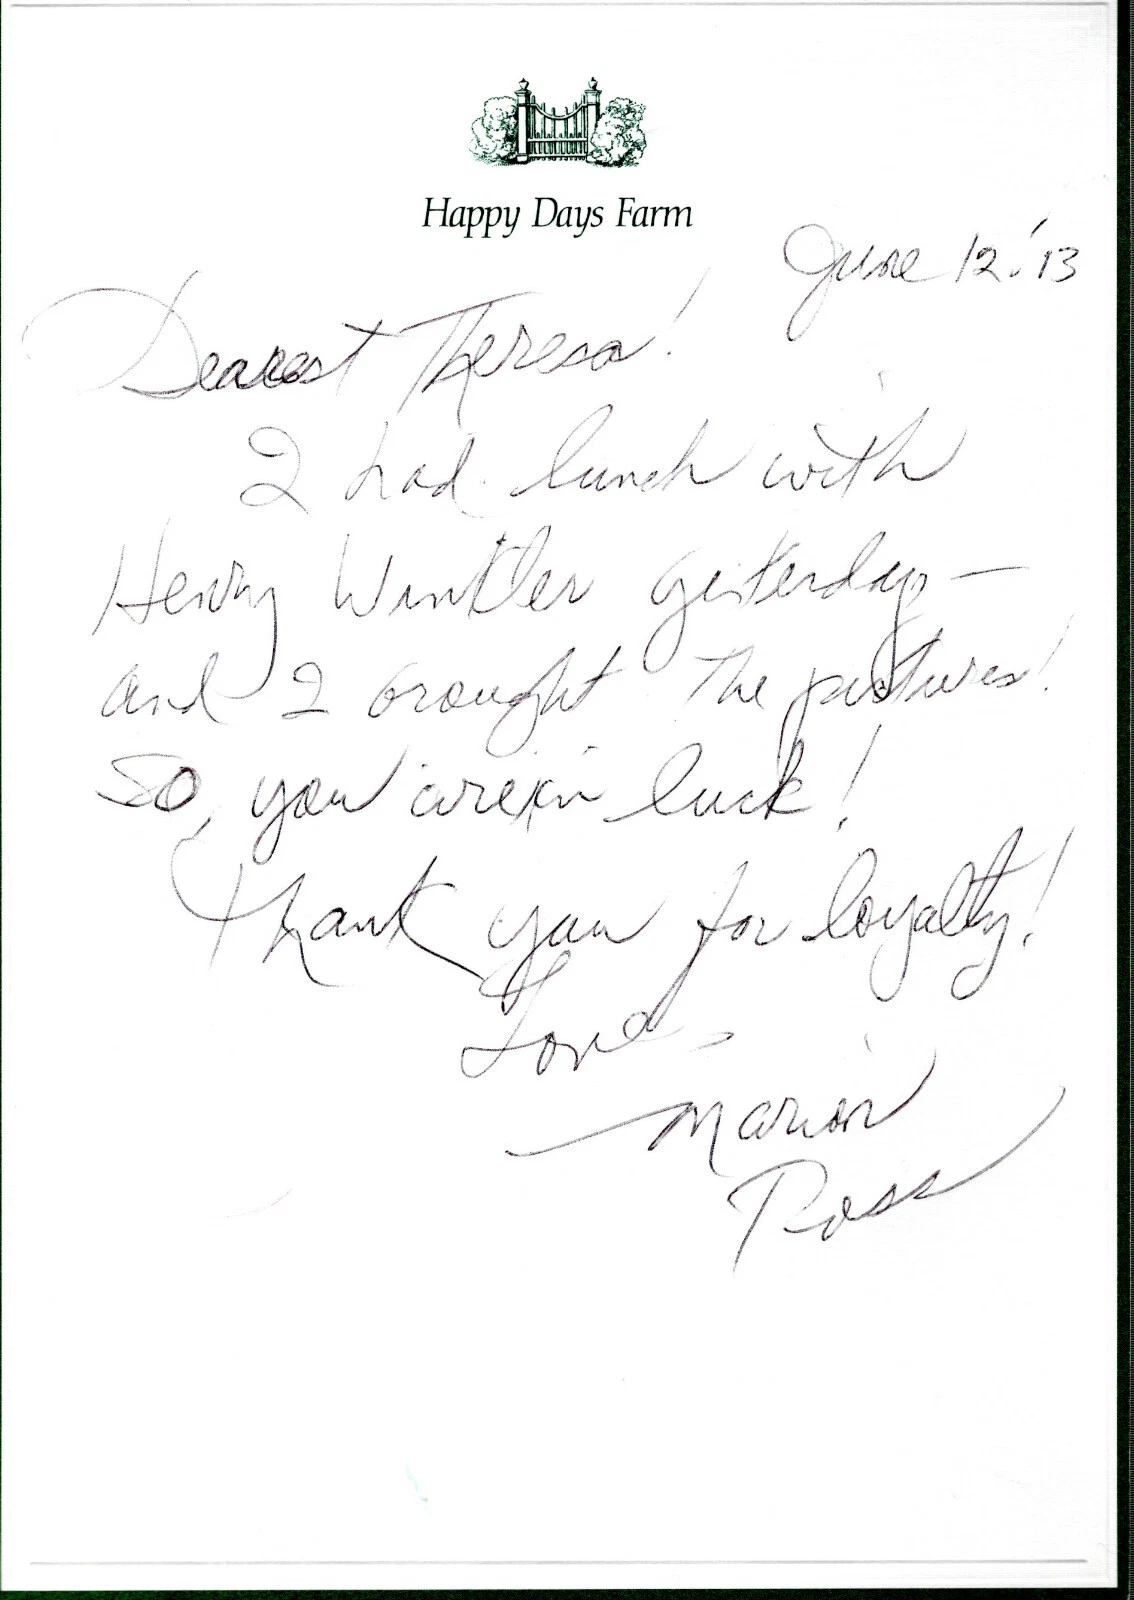 Happy Days Farm
June 12.'13
Dearest Theresa!
I had lunch with
Henry Winkler yesterday —
and I brought the pictures!
So, you are in luck!
Thank you for loyalty!
Love,
Marion
Ross